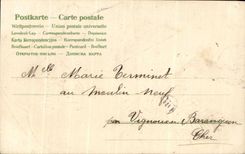 Postkarte — Carte postale
Weltpostverein — Union postale universelle
Levelező-Lap — Correspondenzkarte — Dopisnice
Karta Korespondencyjna — Korespondenční listek
Brefkort — Cartolina postale — Postcard — Briefkaart
Открытое письмо — Дописна карта
Mlle Marie Terminet
au moulin neuf
par Vignoux Barangeon
Cher